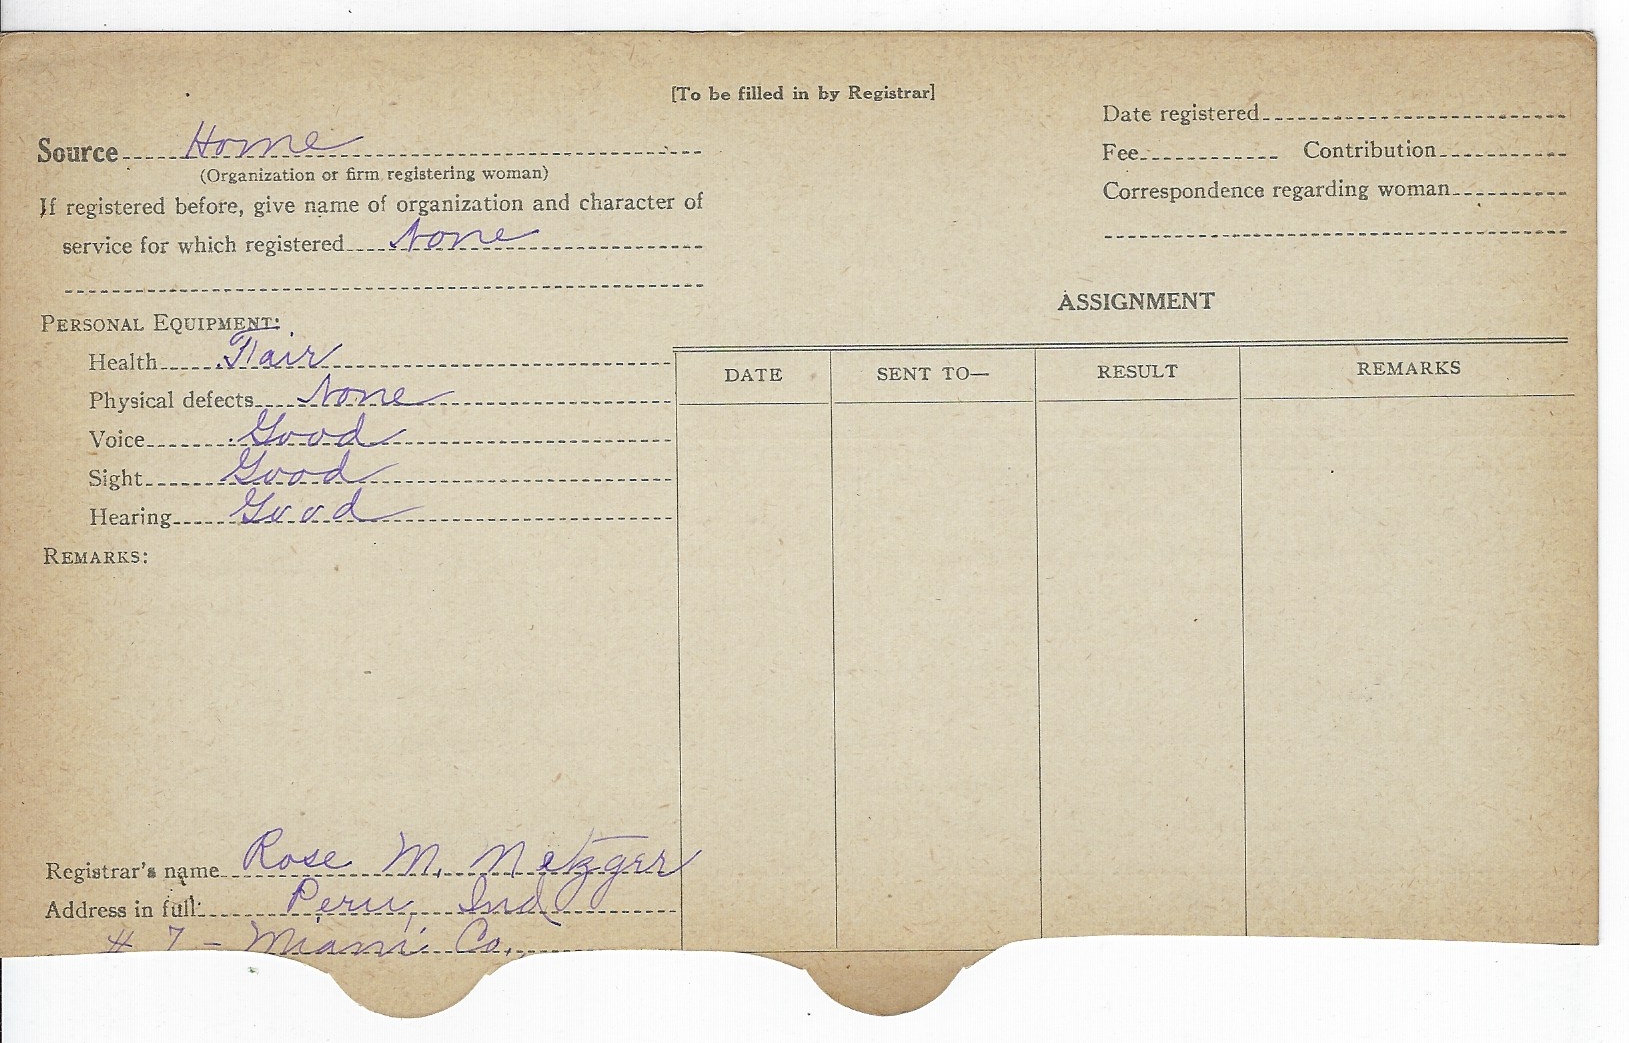 [To be filled in by Registrar]
Source Home
(Organization or firm registering woman)
If registered before, give name of organization and character of
service for which registered None
PERSONAL EQUIPMENT:
Health Fair
Physical defects None
Voice Good
Sight Good
Hearing Good
REMARKS:
Registrar's name Rose M. Metzger
Address in full: Peru, Ind
# 7 - Miami Co.
Date registered
Fee Contribution
Correspondence regarding woman
ASSIGNMENT
DATE SENT TO— RESULT REMARKS